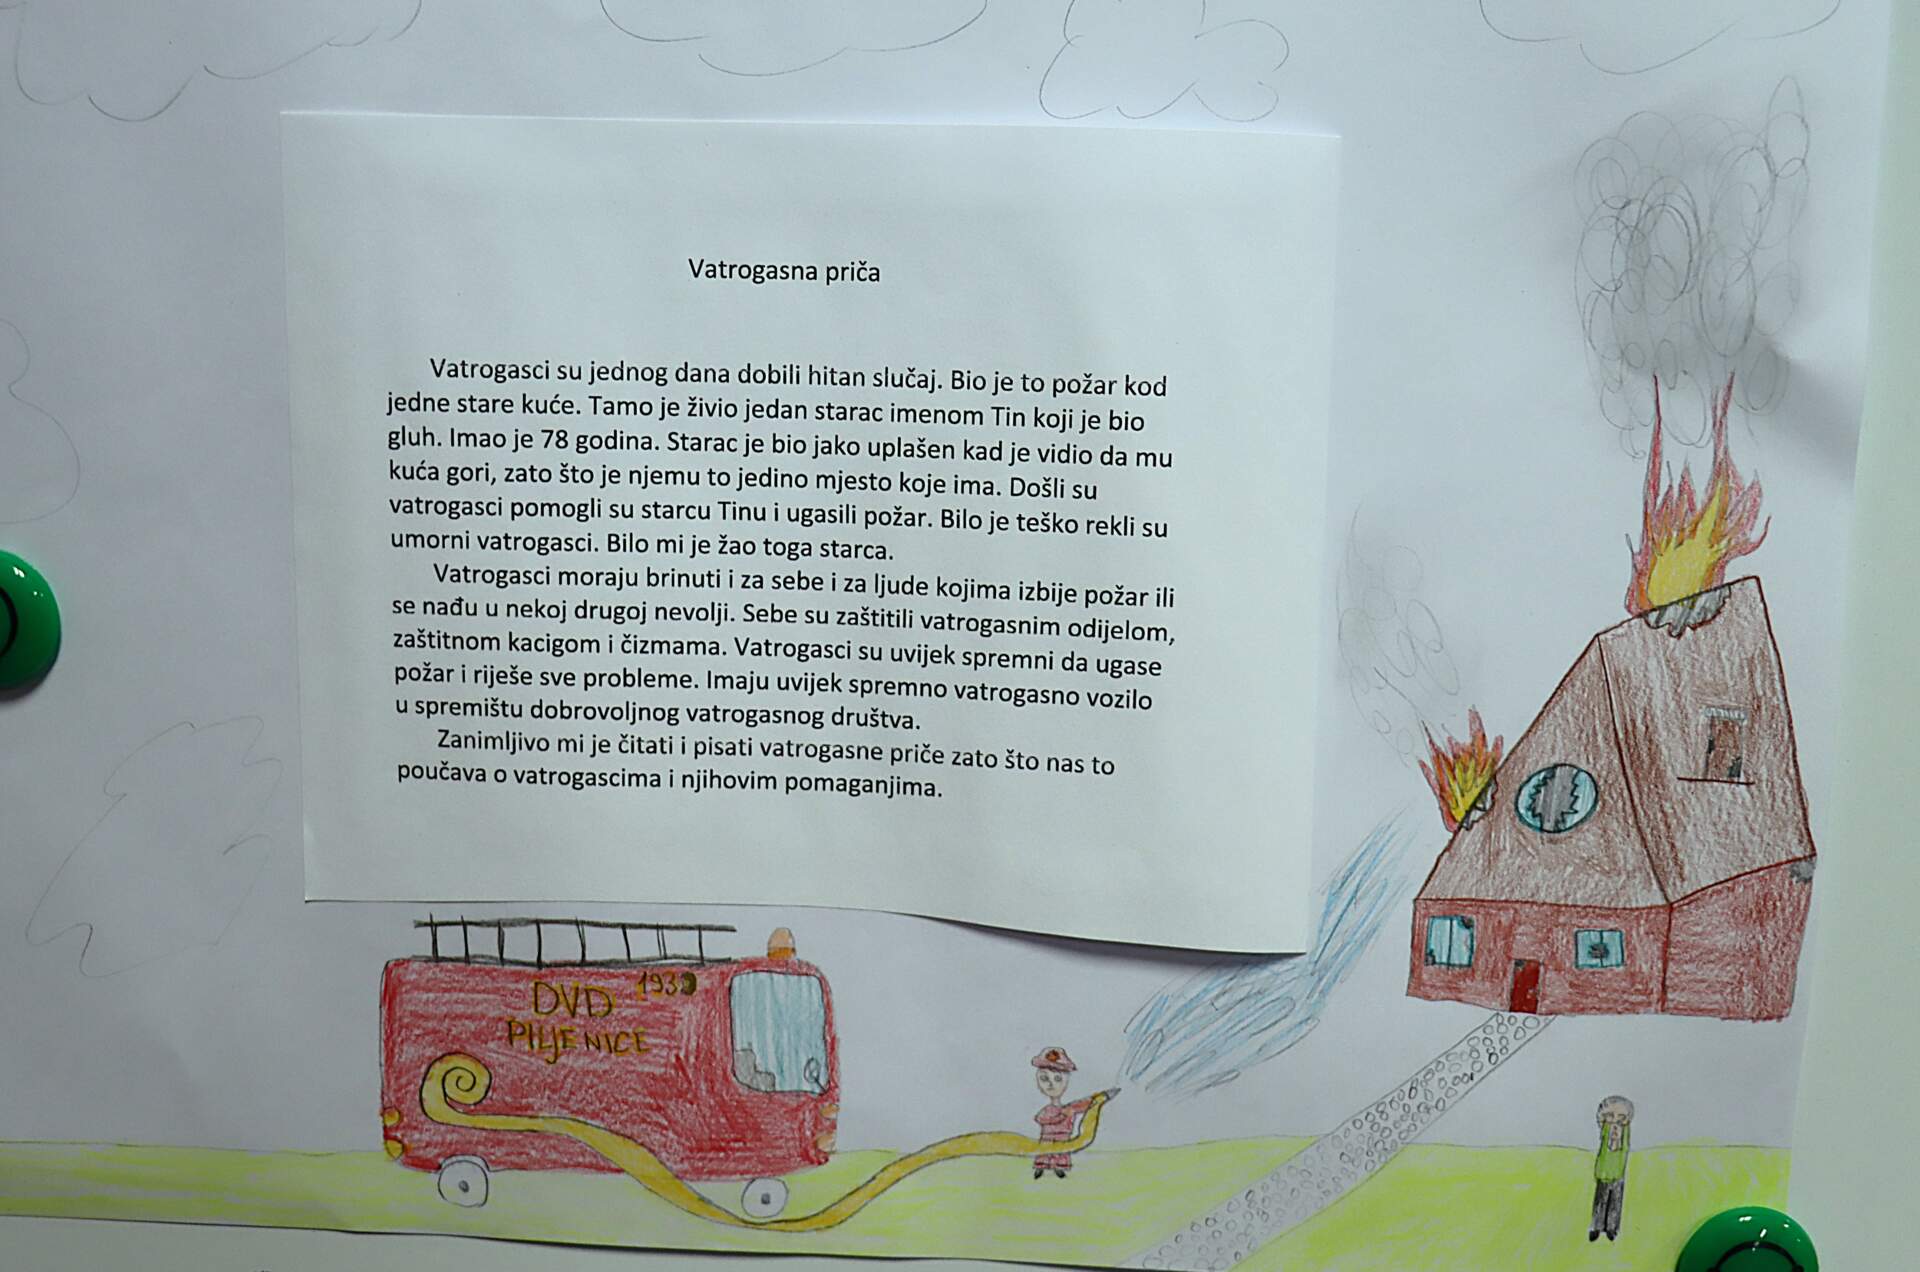 Vatrogasna priča
Vatrogasci su jednog dana dobili hitan slučaj. Bio je to požar kod
jedne stare kuće. Tamo je živio jedan starac imenom Tin koji je bio
gluh. Imao je 78 godina. Starac je bio jako uplašen kad je vidio da mu
kuća gori, zato što je njemu to jedino mjesto koje ima. Došli su
vatrogasci pomogli su starcu Tinu i ugasili požar. Bilo je teško rekli su
umorni vatrogasci. Bilo mi je žao toga starca.
Vatrogasci moraju brinuti i za sebe i za ljude kojima izbije požar ili
se nađu u nekoj drugoj nevolji. Sebe su zaštitili vatrogasnim odijelom,
zaštitnom kacigom i čizmama. Vatrogasci su uvijek spremni da ugase
požar i riješe sve probleme. Imaju uvijek spremno vatrogasno vozilo
u spremištu dobrovoljnog vatrogasnog društva.
Zanimljivo mi je čitati i pisati vatrogasne priče zato što nas to
poučava o vatrogascima i njihovim pomaganjima.
DVD
PILJENICE